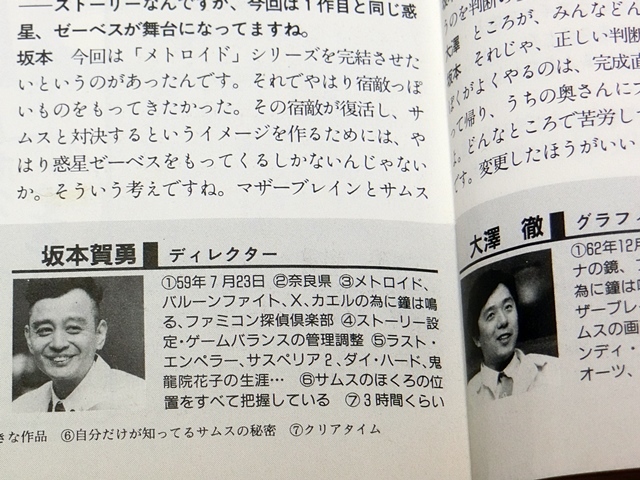 ――ストーリーなんですが、今回は1作目と同じ惑
星、ゼーベスが舞台になってますね。
坂本　今回は「メトロイド」シリーズを完結させた
いというのがあったんです。それでやはり宿敵っぽ
いものをもってきたかった。その宿敵が復活し、サ
ムスと対決するというイメージを作るためには、や
はり惑星ゼーベスをもってくるしかないんじゃない
か。そういう考えですね。マザーブレインとサムス
坂本賀勇　ディレクター
①59年7月23日 ②奈良県 ③メトロイド、
バルーンファイト、X、カエルの為に鐘は鳴
る、ファミコン探偵倶楽部 ④ストーリー設
定・ゲームバランスの管理調整 ⑤ラスト・
エンペラー、サスペリア2、ダイ・ハード、鬼
龍院花子の生涯… ⑥サムスのほくろの位
置をすべて把握している ⑦3時間くらい
きな作品 ⑥自分だけが知ってるサムスの秘密 ⑦クリアタイム
うのを判断の
ところが、みんなどん
大澤　それじゃ、正しい判断
坂本
ぼくがよくやるのは、完成直
って帰り、うちの奥さんにプ
よ。どんなところで苦労して
です。変更したほうがいい
大澤　徹　グラフィ
①62年12月
ナの鏡、フ
為に鐘は
ザーブレ
ムスの画
ンディ・
オーツ、